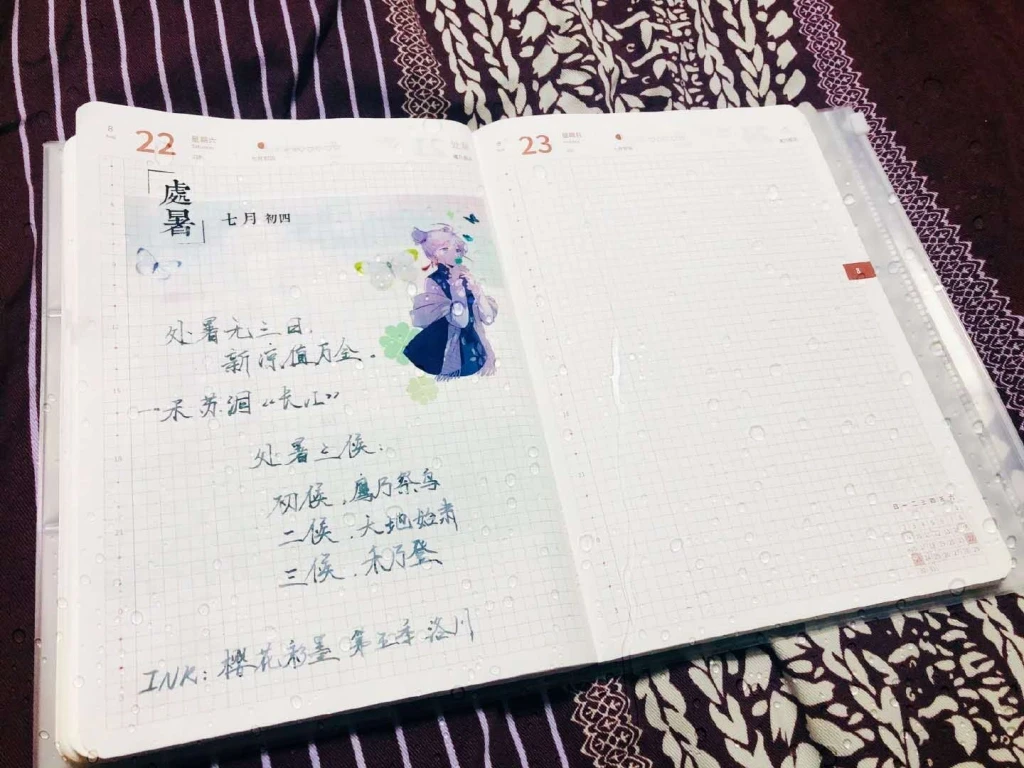 8
22
星期六
處暑
七月 初四
处暑无三日,
新凉值万金.
一禾 苏泪《长江》
处暑之候:
初候.鹰乃祭鸟
二候.天地始肃
三候.禾乃登
INK:樱花彩墨 第五季 洛川
23
8